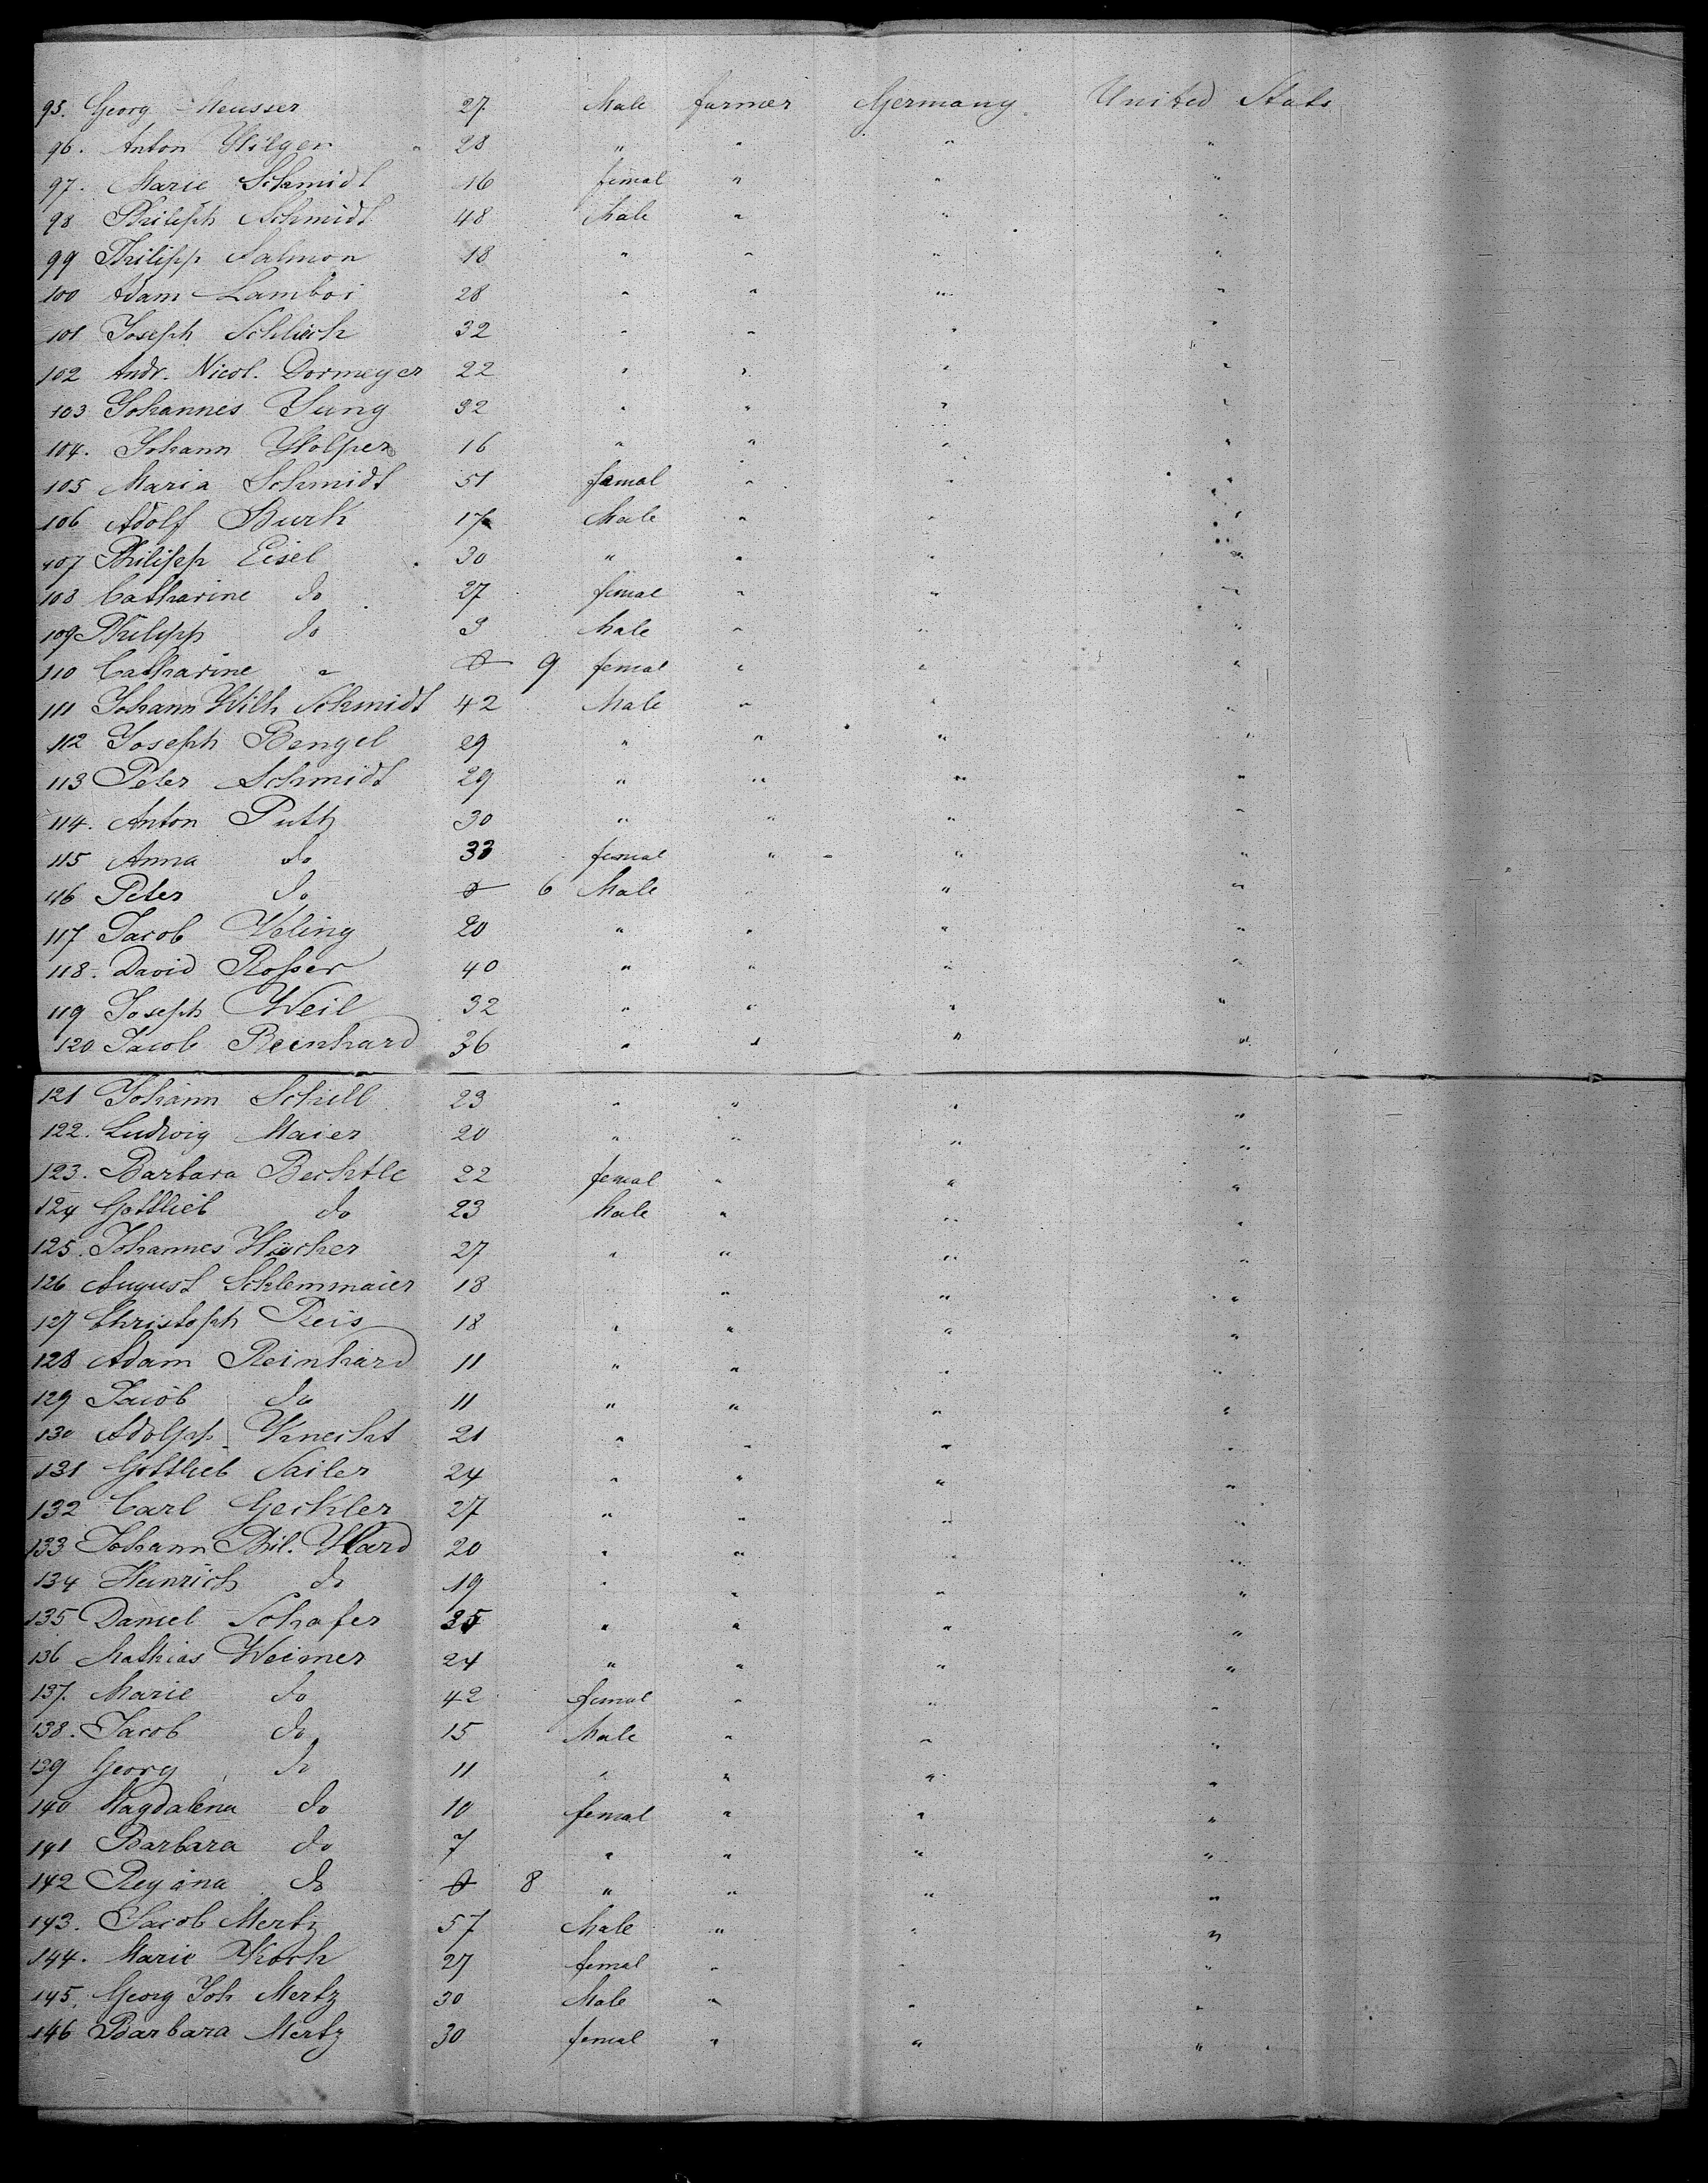 95. Georg Meusser 27 Male farmer Germany United Stats
96. Anton Hilger 28 " " " "
97. Marie Schmidt 16 femal " " "
98 Philiph Schmidt 48 Male " " "
99 Philipp Salmon 18 " " " "
100 Adam Lamboi 28 " " " "
101 Joseph 32 " " " "
102 Andr. Nicol. Dormeyer 22 " " " "
103 Johannes Jung 32 " " " "
104. Johann Holper 16 " " " "
105 Maria Schmidt 51 femal " " "
106 Adolf Burk 17 Male " " "
107 Philipp Eisel 30 " " " "
108 Catharine do 27 femal " " "
109 Philipp do 3 Male " " "
110 Catharine " 9 femal " " "
111 Johann Wilh Schmidt 42 Male " " "
112 Joseph Bengel 29 " " " "
113 Peter Schmidt 29 " " " "
114. Anton Puth 30 " " " "
115 Anna do 33 femal " " "
116 Peter do 6 Male " " "
117 Jacob Weling 20 " " " "
118. David Rosser 40 " " " "
119 Joseph Weil 32 " " " "
120 Jacob Reinhard 36 " " " "
121 Johann Schill 23 " " " "
122. Ludwig Maier 20 " " " "
123. Barbara Bechtle 22 femal " " "
124 Gottlieb do 23 Male " " "
125. Johannes 27 " " " "
126 August Schlemmaier 18 " " "
127 Christoph Reis 18 " " " "
128 Adam Reinhard 11 " " " "
129 Jacob do 11 " " " "
130 Adolpp Knecht 21 " " " "
131 Gottlieb Sailer 24 " " " "
132 Carl Gechler 27 " " " "
133 Johann Phil. Hard 20 " " " "
134 Heinrich do 19 " " " "
135 Daniel Schafer 25 " " " "
136 Mathias Weimer 24 " " " "
137. Marie do 42 femal " " "
138. Jacob do 15 Male " " "
139 Georg do 11 " " " "
140 Magdalena do 10 femal " " "
141 Barbara do 7 " " " "
142 Regina do 8 " " " "
143. Jacob Mertz 57 Male " " "
144. Marie Koch 27 femal " " "
145. Georg Joh Mertz 30 Male " " "
146 Barbara Mertz 30 femal " " "